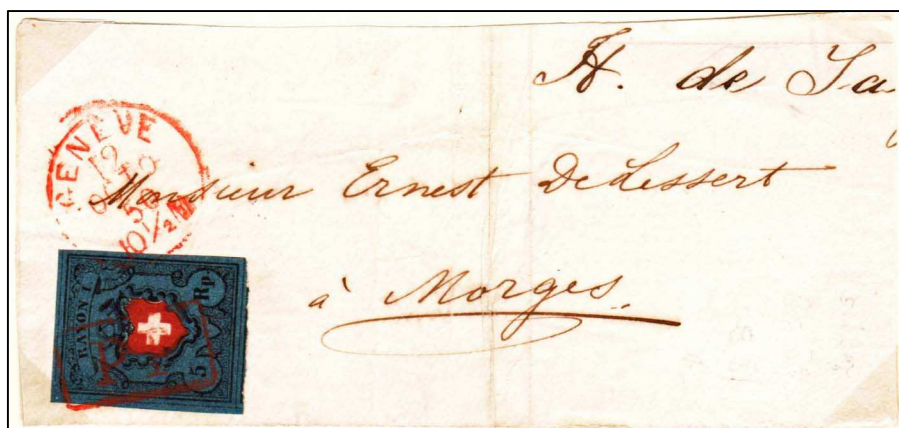 H. de
GENEVE
12
50
10½
Monsieur Ernest DeLessert
à Morges
RAYON I.
5 Rp